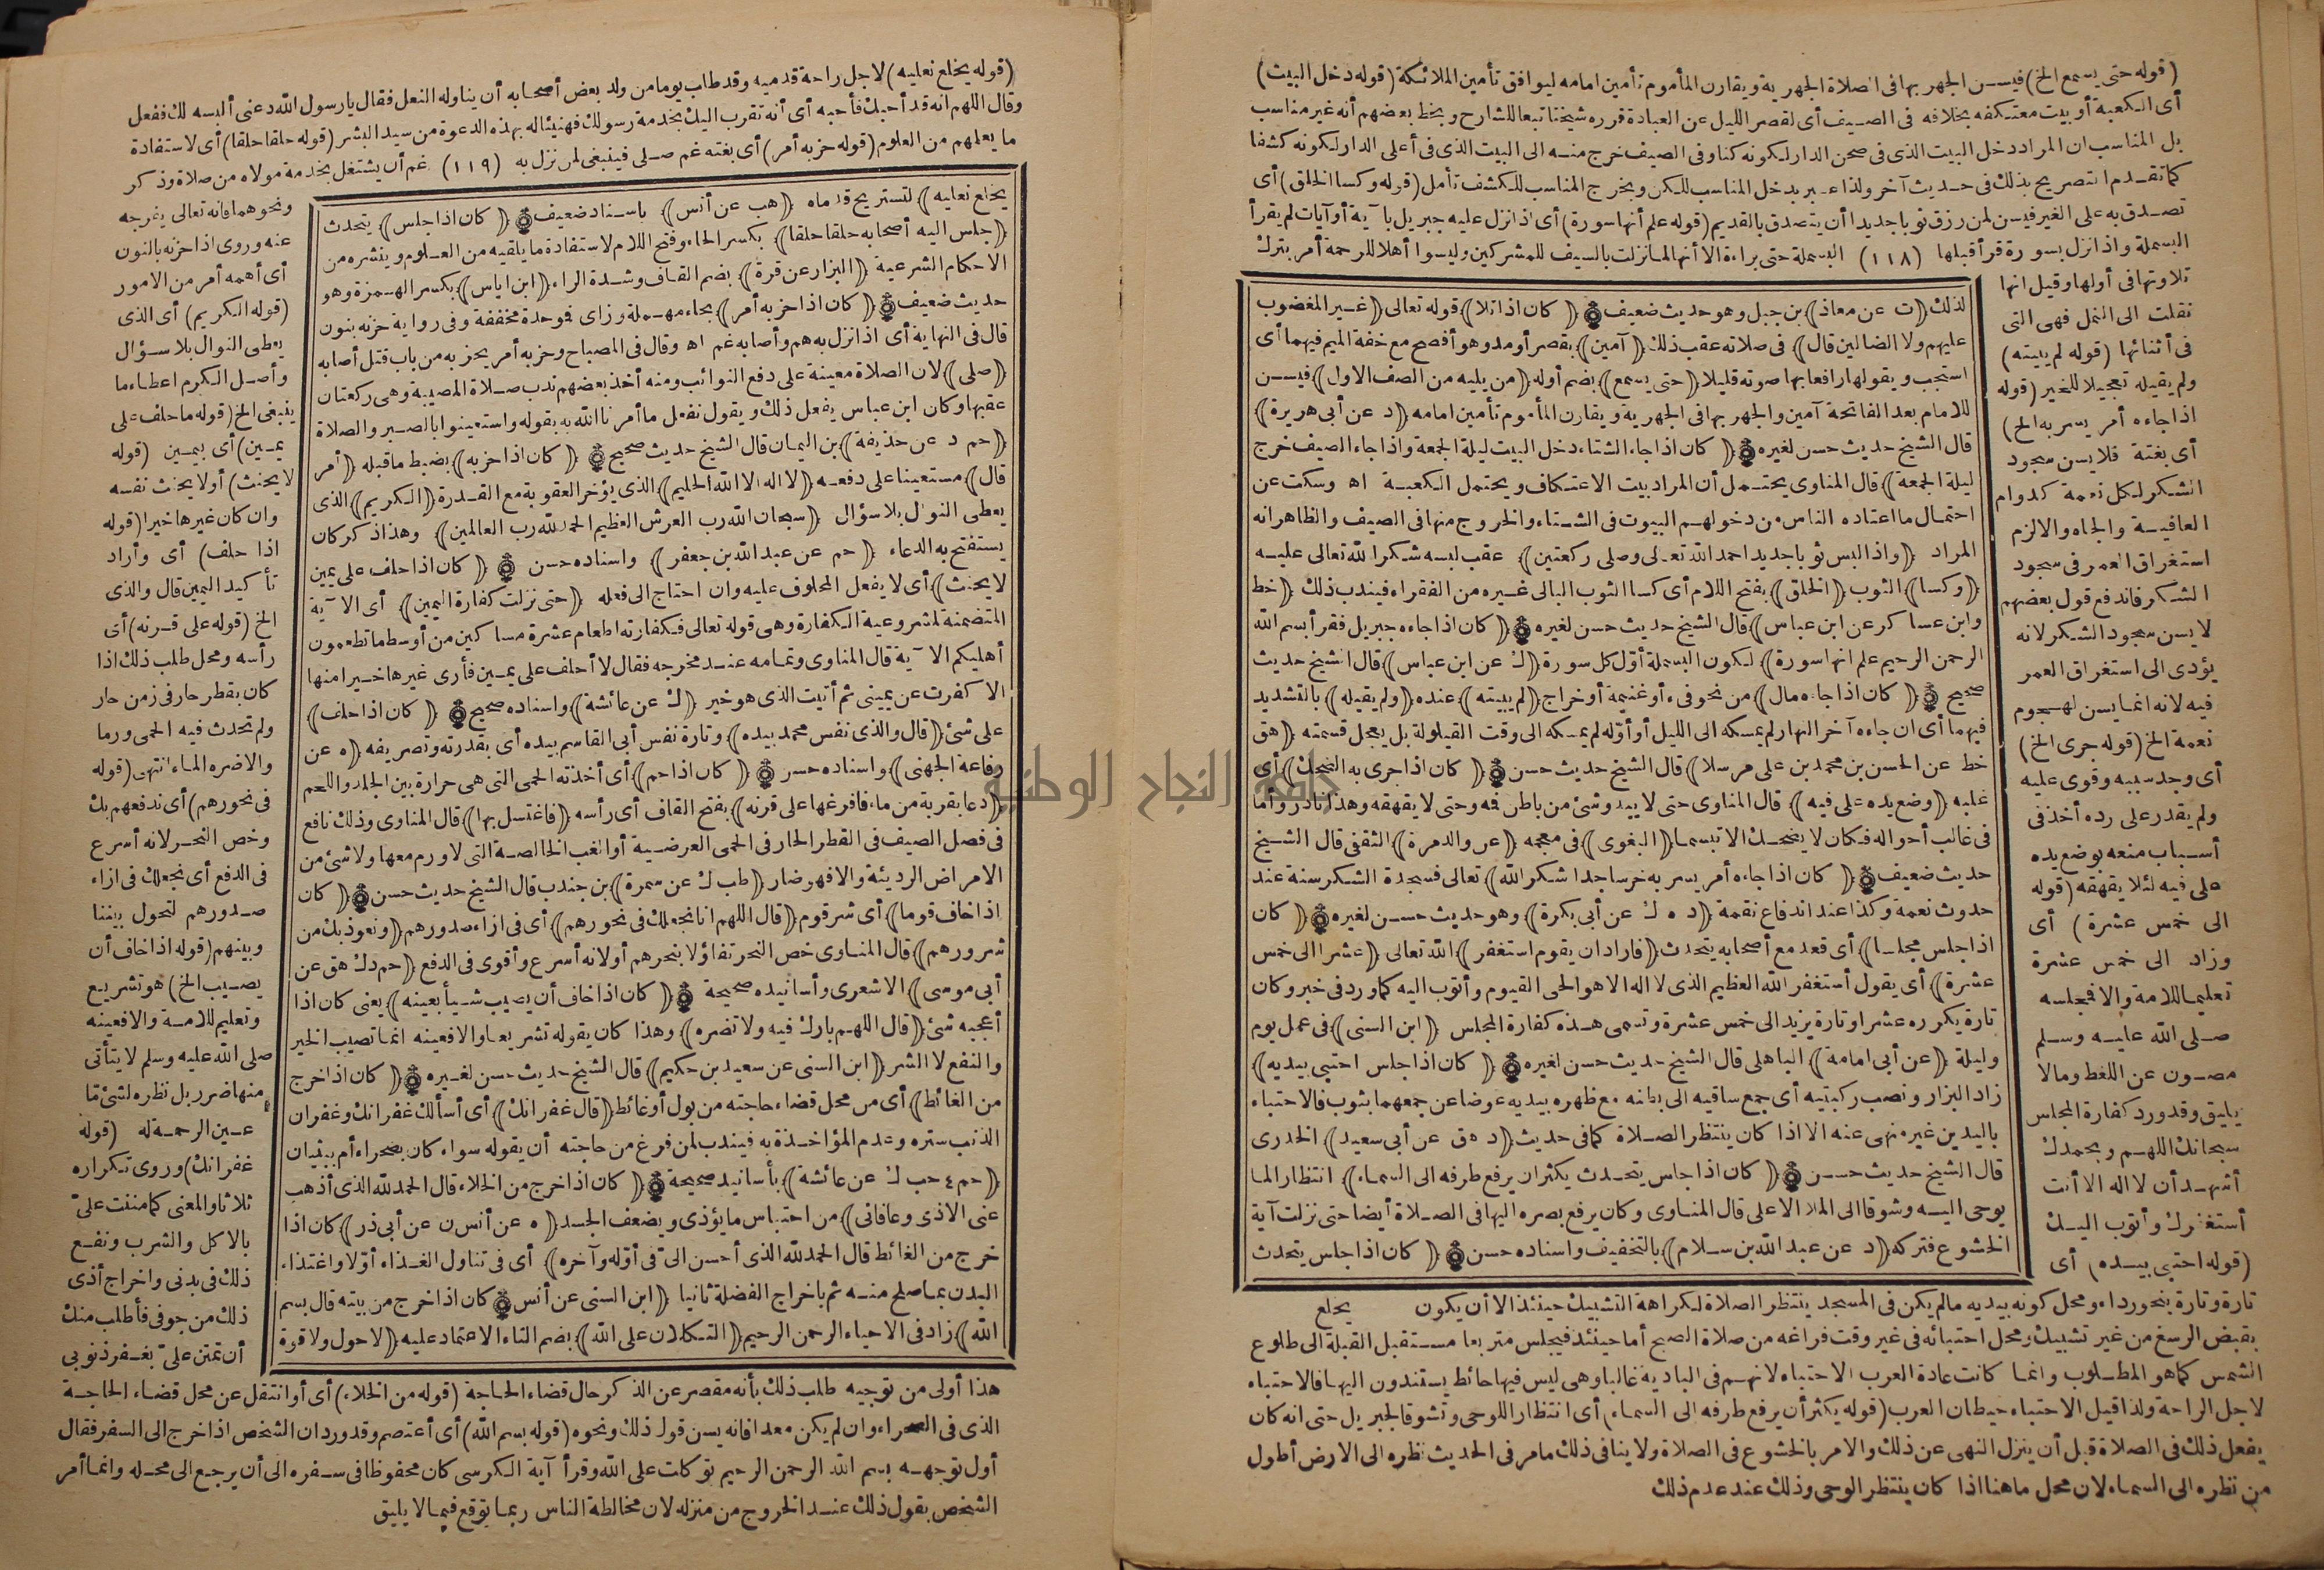 (قوله حتى يسمع الخ) فيسن الجهر بها فى الصلاة الجهرية ويقارن المأموم تأمين امامه ليوافق تأمين الملائكة (قوله دخل البيت)
أى الكعبة أو بيت معتكفه بخلافه فى الصيف أى لقصر الليل عن العبادة قرره شيخنا تبعا للشارح وبخط بعضهم أنه غير مناسب
بل المناسب ان المراد دخل البيت الذى فى صحن الدار لكونه كنا وفى الصيف خرج منه الى البيت الذى فى أعلى الدار لكونه كشفا
كما تقدم التصريح بذلك فى حديث آخر ولذا عبر بدخل المناسب للكن وبخرج المناسب للكشف تأمل (قوله وكسا الخلق) أى
تصدق به على الغير فيسن لمن رزق ثوبا جديدا أن يتصدق بالقديم (قوله علم أنها سورة) أى اذا نزل عليه جبريل بآية أو آيات لم يقرأ
البسملة واذا نزل بسورة قرأ قبلها (١١٨) البسملة حتى براءة الا أنها لما نزلت بالسيف للمشركين وليسوا أهلا للرحمة أمر بترك
تلاوتها فى أولها وقيل انها
نقلت الى النمل فهى التى
فى أثنائها (قوله لم يبيته)
ولم يقيله تعجيلا للخير (قوله
اذا جاءه أمر يسر به الخ)
أى بغتة فلا يسن سجود
الشكر لكل نعمة كدوام
العافية والجاه والا لزم
استغراق العمر فى سجود
الشكر فاندفع قول بعضهم
لا يسن سجود الشكر لانه
يؤدى الى استغراق العمر
فيه لانه انما يسن لهجوم
نعمة الخ (قوله جرى الخ)
أى وجد سببه وقوى عليه
ولم يقدر على رده أخذ فى
أسباب منعه بوضع يده
على فيه لئلا يقهقه (قوله
الى خمس عشرة) أى
وزاد الى خمس عشرة
تعليما للامة والا فمجلسه
صلى الله عليه وسلم
مصون عن اللغط ومالا
يليق وقد ورد كفارة المجلس
سبحانك اللهم وبحمدك
أشهد أن لا اله الا أنت
أستغفرك وأتوب اليك
(قوله احتبى بيده) أى
لذلك (ت عن معاذ) بن جبل وهو حديث ضعيف (كان اذا تلا) قوله تعالى (غير المغضوب
عليهم ولا الضالين قال) فى صلاته عقب ذلك (آمين) بقصر أو مد وهو أفصح مع خفة الميم فيهما أى
استجب ويقولها رافعا بها صوته قليلا (حتى يسمع) بضم أوله (من يليه من الصف الاول) فيسن
للامام بعد الفاتحة آمين والجهر بها فى الجهرية ويقارن المأموم تأمين امامه (د عن أبى هريرة)
قال الشيخ حديث حسن لغيره (كان اذا جاء الشتاء دخل البيت ليلة الجمعة واذا جاء الصيف خرج
ليلة الجمعة) قال المناوى يحتمل أن المراد بيت الاعتكاف ويحتمل الكعبة اه وسكت عن
احتمال ما اعتاده الناس من دخولهم البيوت فى الشتاء والخروج منها فى الصيف والظاهر انه
المراد (واذا لبس ثوبا جديدا حمد الله تعالى وصلى ركعتين) عقب لبسه شكرا لله تعالى عليه
(وكسا) الثوب (الخلق) بفتح اللام أى كسا الثوب البالى غيره من الفقراء فيندب ذلك (خط
وابن عساكر عن ابن عباس) قال الشيخ حديث حسن لغيره (كان اذا جاءه جبريل فقرأ بسم الله
الرحمن الرحيم علم انها سورة) لكون البسملة أول كل سورة (ك عن ابن عباس) قال الشيخ حديث
صحيح (كان اذا جاءه مال) من نحو فىء أو غنيمة أو خراج (لم يبيته) عنده (ولم يقيله) بالتشديد
فيهما أى ان جاءه آخر النهار لم يمسكه الى الليل أو أوله لم يمسكه الى وقت القيلولة بل يعجل قسمته (هق
خط عن الحسن بن محمد بن على مرسلا) قال الشيخ حديث حسن (كان اذا جرى به الضحك) أى
غلبه (وضع يده على فيه) قال المناوى حتى لا يبدو شئ من باطن فه وحتى لا يقهقه وهذا نادر وأما
فى غالب أحواله فكان لا يضحك الا تبسما (البغوى) فى معجمه (عن والد مرة) الثقفى قال الشيخ
حديث ضعيف (كان اذا جاءه أمر يسر به خر ساجدا شكرا لله) تعالى فسجدة الشكر سنة عند
حدوث نعمة وكذا عند اندفاع نقمة (د ه ك عن أبى بكرة) وهو حديث حسن لغيره (كان
اذا جلس مجلسا) أى قعد مع أصحابه يتحدث (فاراد ان يقوم استغفر) الله تعالى (عشرا الى خمس
عشرة) أى يقول أستغفر الله العظيم الذى لا اله الا هو الحى القيوم وأتوب اليه كما ورد فى خبر وكان
تارة يكرره عشرا وتارة يزيد الى خمس عشرة وتسمى هذه كفارة المجلس (ابن السنى) فى عمل يوم
وليلة (عن أبى امامة) الباهلى قال الشيخ حديث حسن لغيره (كان اذا جلس احتبى بيديه)
زاد البزار ونصب ركبتيه أى جمع ساقيه الى بطنه مع ظهره بيديه عوضا عن جمعهما بثوب فالاحتباء
باليدين غير منهى عنه الا اذا كان ينتظر الصلاة كما فى حديث (د هق عن أبى سعيد) الخدرى
قال الشيخ حديث حسن (كان اذا جلس يتحدث يكثر ان يرفع طرفه الى السماء) انتظارا لما
يوحى اليه وشوقا الى الملا الاعلى قال المناوى وكان يرفع بصره اليها فى الصلاة أيضا حتى نزلت آية
الخشوع فتركه (د عن عبد الله بن سلام) بالتخفيف واسناده حسن (كان اذا جلس يتحدث
تارة وتارة بنحو رداء ومحل كونه بيديه مالم يكن فى المسجد ينتظر الصلاة لكراهة التشبيك حينئذ الا أن يكون يخلع
بقبض الرسغ من غير تشبيك ومحل احتبائه فى غير وقت فراغه من صلاة الصبح أما حينئذ فيجلس متربعا مستقبل القبلة الى طلوع
الشمس كما هو المطلوب وانما كانت عادة العرب الاحتباء لانهم فى البادية غالبا وهى ليس فيها حائط يستندون اليها فالاحتباء
لاجل الراحة ولذا قيل الاحتباء حيطان العرب (قوله يكثر أن يرفع طرفه الى السماء) أى انتظار اللوحى وتشوقا لجبريل حتى انه كان
يفعل ذلك فى الصلاة قبل أن ينزل النهى عن ذلك والامر بالخشوع فى الصلاة ولا ينافى ذلك مامر فى الحديث نظره الى الارض أطول
من نظره الى السماء لان محل ما هنا اذا كان ينتظر الوحى وذلك عند عدم ذلك
(قوله يخلع نعليه) لاجل راحة قدميه وقد طاب يوما من ولد بعض أصحابه أن يناوله النعل فقال يارسول الله دعنى ألبسه لك ففعل
وقال اللهم انه قد أحبك فأحبه أى أنه تقرب اليك بخدمة رسولك فهنيئا له بهذه الدعوة من سيد البشر (قوله حلقا حلقا) أى لاستفادة
ما يعلمهم من العلوم (قوله حزبه أمر) أى بغته غم صلى فينبغى لمن نزل به (١١٩) غم أن يشتغل بخدمة مولاه من صلاة وذكر
ونحوهما فانه تعالى يفرجه
عنه وروى اذا حزنه بالنون
أى أهمه أمر من الامور
(قوله الكريم) أى الذى
يعطى النوال بلا سؤال
وأصل الكرم اعطاء ما
ينبغى الخ (قوله ما حلف على
يمين) أى بيمين (قوله
لا يحنث) أو لا يحنث نفسه
وان كان غيرها خيرا (قوله
اذا حلف) أى وأراد
تأكيد اليمين قال والذى
الخ (قوله على قرنه) أى
رأسه ومحل طلب ذلك اذا
كان بقطر حار فى زمن حار
ولم تحدث فيه الحمى ورما
والا ضره الماء انتهى (قوله
فى نحورهم) أى ندفعهم بك
وخص النحر لانه أسرع
فى الدفع أى نجعلك فى ازاء
صدورهم لتحول بيننا
وبينهم (قوله اذا خاف أن
يصيب الخ) هو تشريع
وتعليم للامة والا فعينه
صلى الله عليه وسلم لا يتأتى
منها ضرر بل نظره لشئ مّا
عين الرحمة له (قوله
غفرانك) وروى تكراره
ثلاثا والمعنى كما مننت علىّ
بالاكل والشرب ونفع
ذلك فى بدنى واخراج أذى
ذلك من جوفى فأطلب منك
أن تمتن علىّ بغفر ذنوبى
يخلع نعليه) لتستريح قدماه (هب عن أنس) باسناد ضعيف (كان اذا جلس) يتحدث
(جلس اليه أصحابه حلقا حلقا) بكسر الحاء وفتح اللام لاستفادة ما يلقيه من العلوم وينشره من
الاحكام الشرعية (البزار عن قرة) بضم القاف وشدة الراء (ابن اياس) بكسر الهمزة وهو
حديث ضعيف (كان اذا حزبه أمر) بحاء مهملة وزاى فموحدة مخففة وفى رواية حزنه بنون
قال فى النهاية أى اذا نزل به هم وأصابه غم اه وقال فى المصباح وحزبه أمر يحزبه من باب قتل أصابه
(صلى) لان الصلاة معينة على دفع النوائب ومنه أخذ بعضهم ندب صلاة المصيبة وهى ركعتان
عقبها وكان ابن عباس يفعل ذلك ويقول نفعل ما أمرنا الله به بقوله واستعينوا بالصبر والصلاة
(حم د عن حذيفة) بن اليمان قال الشيخ حديث صحيح (كان اذا حزبه) بضبط ما قبله (أمر
قال) مستعينا على دفعه (لا اله الا الله الحليم) الذى يؤخر العقوبة مع القدرة (الكريم) الذى
يعطى النوال بلا سؤال (سبحان الله رب العرش العظيم الحمد لله رب العالمين) وهذا ذكر كان
يستفتح به الدعاء (حم عن عبد الله بن جعفر) واسناده حسن (كان اذا حلف على يمين
لا يحنث) أى لا يفعل المحلوف عليه وان احتاج الى فعله (حتى نزلت كفارة اليمين) أى الآية
المتضمنة لمشروعية الكفارة وهى قوله تعالى فكفارته اطعام عشرة مساكين من أوسط ما تطعمون
أهليكم الآية قال المناوى وتمامه عند مخرجه فقال لا أحلف على يمين فأرى غيرها خيرا منها
الا كفرت عن يمينى ثم أتيت الذى هو خير (ك عن عائشة) واسناده صحيح (كان اذا حلف)
على شئ (قال والذى نفس محمد بيده) وتارة نفس أبى القاسم بيده أى بقدرته وتصريفه (ه عن
رفاعة الجهنى) واسناده حسن (كان اذا حم) أى أخذته الحمى التى هى حرارة بين الجلد واللحم
(دعا بقربة من ماء فافرغها على قرنه) بفتح القاف أى رأسه (فاغتسل بها) قال المناوى وذلك نافع
فى فصل الصيف فى القطر الحار فى الحمى العرضية أو الغب الخالصة التى لا ورم معها ولا شئ من
الامراض الرديئة والا فهو ضار (طب ك عن سمرة) بن جندب قال الشيخ حديث حسن (كان
اذا خاف قوما) أى شر قوم (قال اللهم انا نجعلك فى نحورهم) أى فى ازاء صدورهم (ونعوذ بك من
شرورهم) قال المناوى خص النحر تفاؤلا بنحرهم أو لانه أسرع وأقوى فى الدفع (حم د ك هق عن
أبى موسى) الاشعرى وأسانيده صحيحة (كان اذا خاف أن يصيب شيأ بعينه) يعنى كان اذا
أعجبه شئ (قال اللهم بارك فيه ولا تضره) وهذا كان يقوله تشريعا والا فعينه انما تصيب الخير
والنفع لا الشر (ابن السنى عن سعيد بن حكيم) قال الشيخ حديث حسن لغيره (كان اذا خرج
من الغائط) أى من محل قضاء حاجته من بول أو غائط (قال غفرانك) أى أسألك غفرانك وغفران
الذنب ستره وعدم المؤاخذة به فيندب لمن فرغ من حاجته أن يقوله سواء كان بصحراء أم ببنيان
(حم ٤ حب ك عن عائشة) بأسانيد صحيحة (كان اذا خرج من الخلاء قال الحمد لله الذى أذهب
عنى الاذى وعافانى) من احتباس ما يؤذى ويضعف الجسد (ه عن أنس ن عن أبى ذر) كان اذا
خرج من الغائط قال الحمد لله الذى أحسن الىّ فى أوّله وآخره) أى فى تناول الغذاء أوّلا واغتذاء
البدن بما صلح منه ثم باخراج الفضلة ثانيا (ابن السنى عن أنس) كان اذا خرج من بيته قال بسم
الله) زاد فى الاحياء الرحمن الرحيم (التكلان على الله) بضم التاء الاعتماد عليه (لا حول ولا قوة
هذا أولى من توجيه طلب ذلك بأنه مقصر عن الذكر حال قضاء الحاجة (قوله من الخلاء) أى أو انتقل عن محل قضاء الحاجة
الذى فى الصحراء وان لم يكن معدا فانه يسن قول ذلك ونحوه (قوله بسم الله) أى أعتصم وقد ورد ان الشخص اذا خرج الى السفر فقال
أول توجهه بسم الله الرحمن الرحيم توكلت على الله وقرأ آية الكرسى كان محفوظا فى سفره الى أن يرجع الى محله وانما أمر
الشخص بقول ذلك عند الخروج من منزله لان مخالطة الناس ربما توقع فيما لا يليق
جامعة النجاح الوطنية